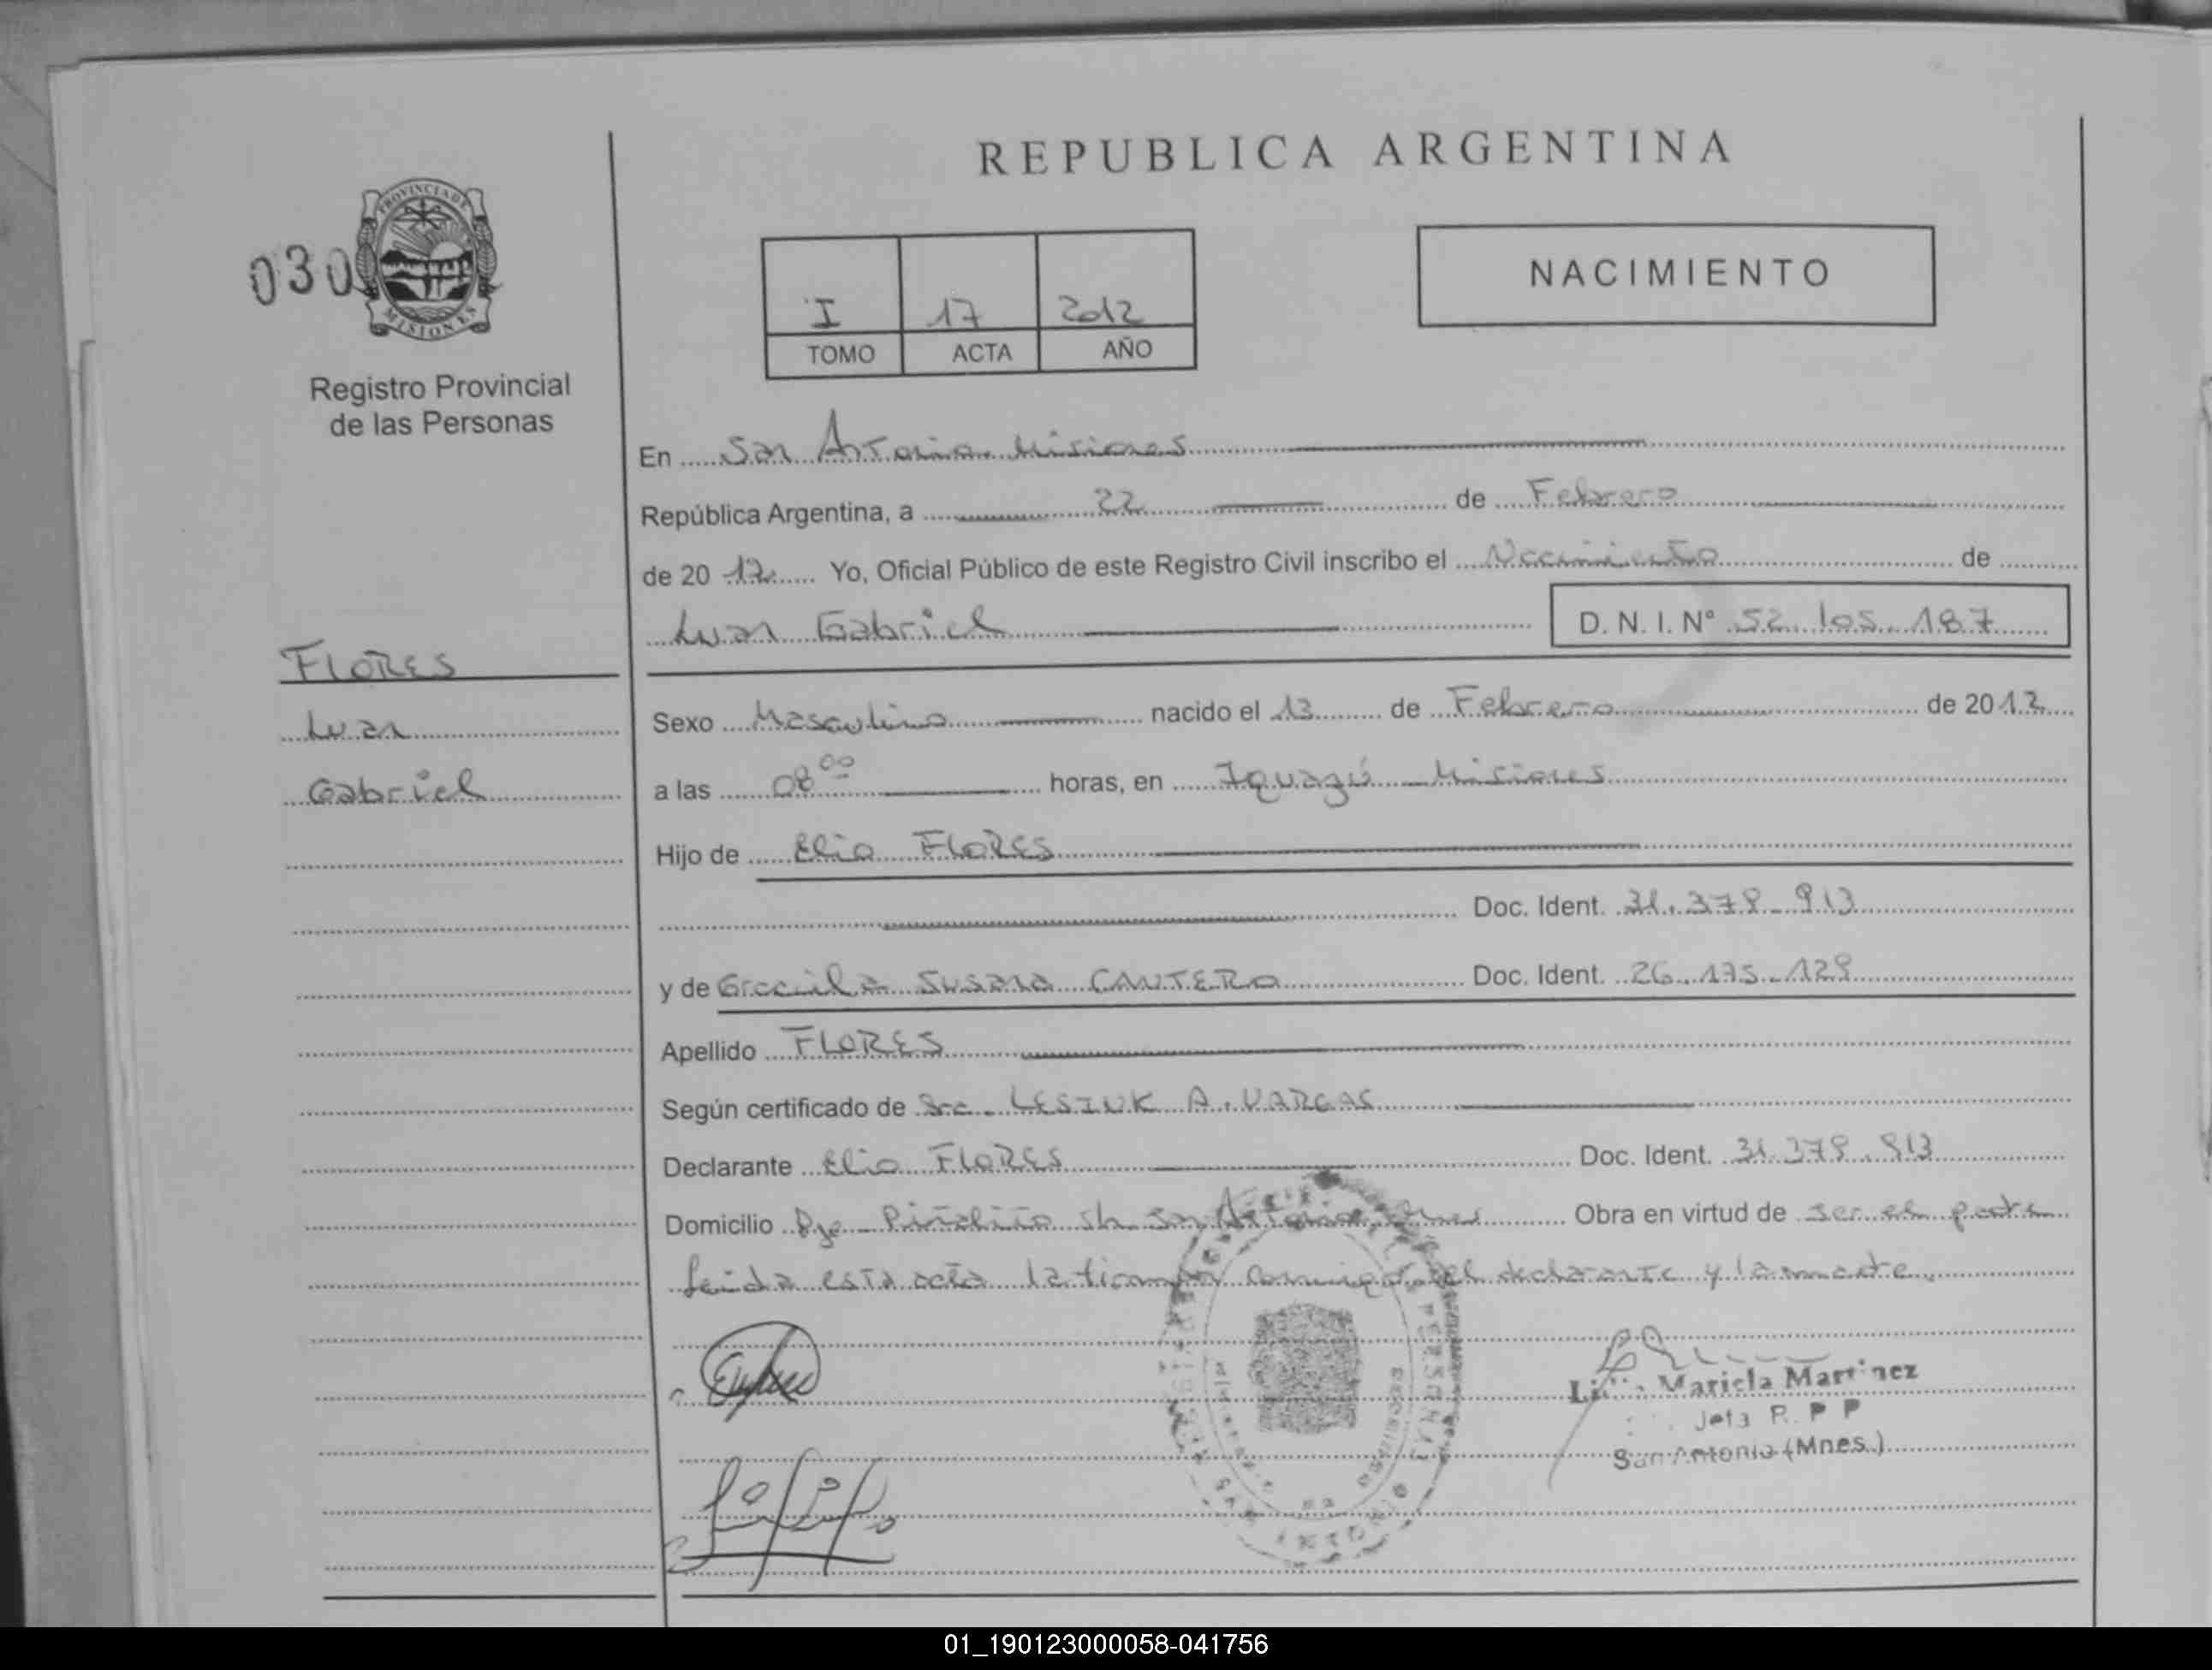 REPUBLICA ARGENTINA
030
PROVINCIA DE
MISIONES
Registro Provincial
de las Personas
I 17 2012
TOMO ACTA AÑO
NACIMIENTO
En San Antonio Misiones
República Argentina, a 22 de Febrero
de 20 12 Yo, Oficial Público de este Registro Civil inscribo el Nacimiento de
Luan Gabriel D. N. I. Nº 52.105.187
FLORES
Luan
Gabriel
Sexo Masculino nacido el 13 de Febrero de 2012
a las 08 00 horas, en Iguazú Misiones
Hijo de Elio FLORES
Doc. Ident. 31.378.913
y de Susana CANTERO Doc. Ident. 26.175.128
Apellido FLORES
Según certificado de LESIUK A. VARGAS
Declarante Elio FLORES Doc. Ident. 31.378.913
Domicilio Pje Piñalito s/n San Antonio Mnes Obra en virtud de ser el padre
Leída esta acta la firman conmigo el declarante y la madre.
Mariela Martinez
Jefa R. P P
San Antonio (Mnes.)
01_190123000058-041756